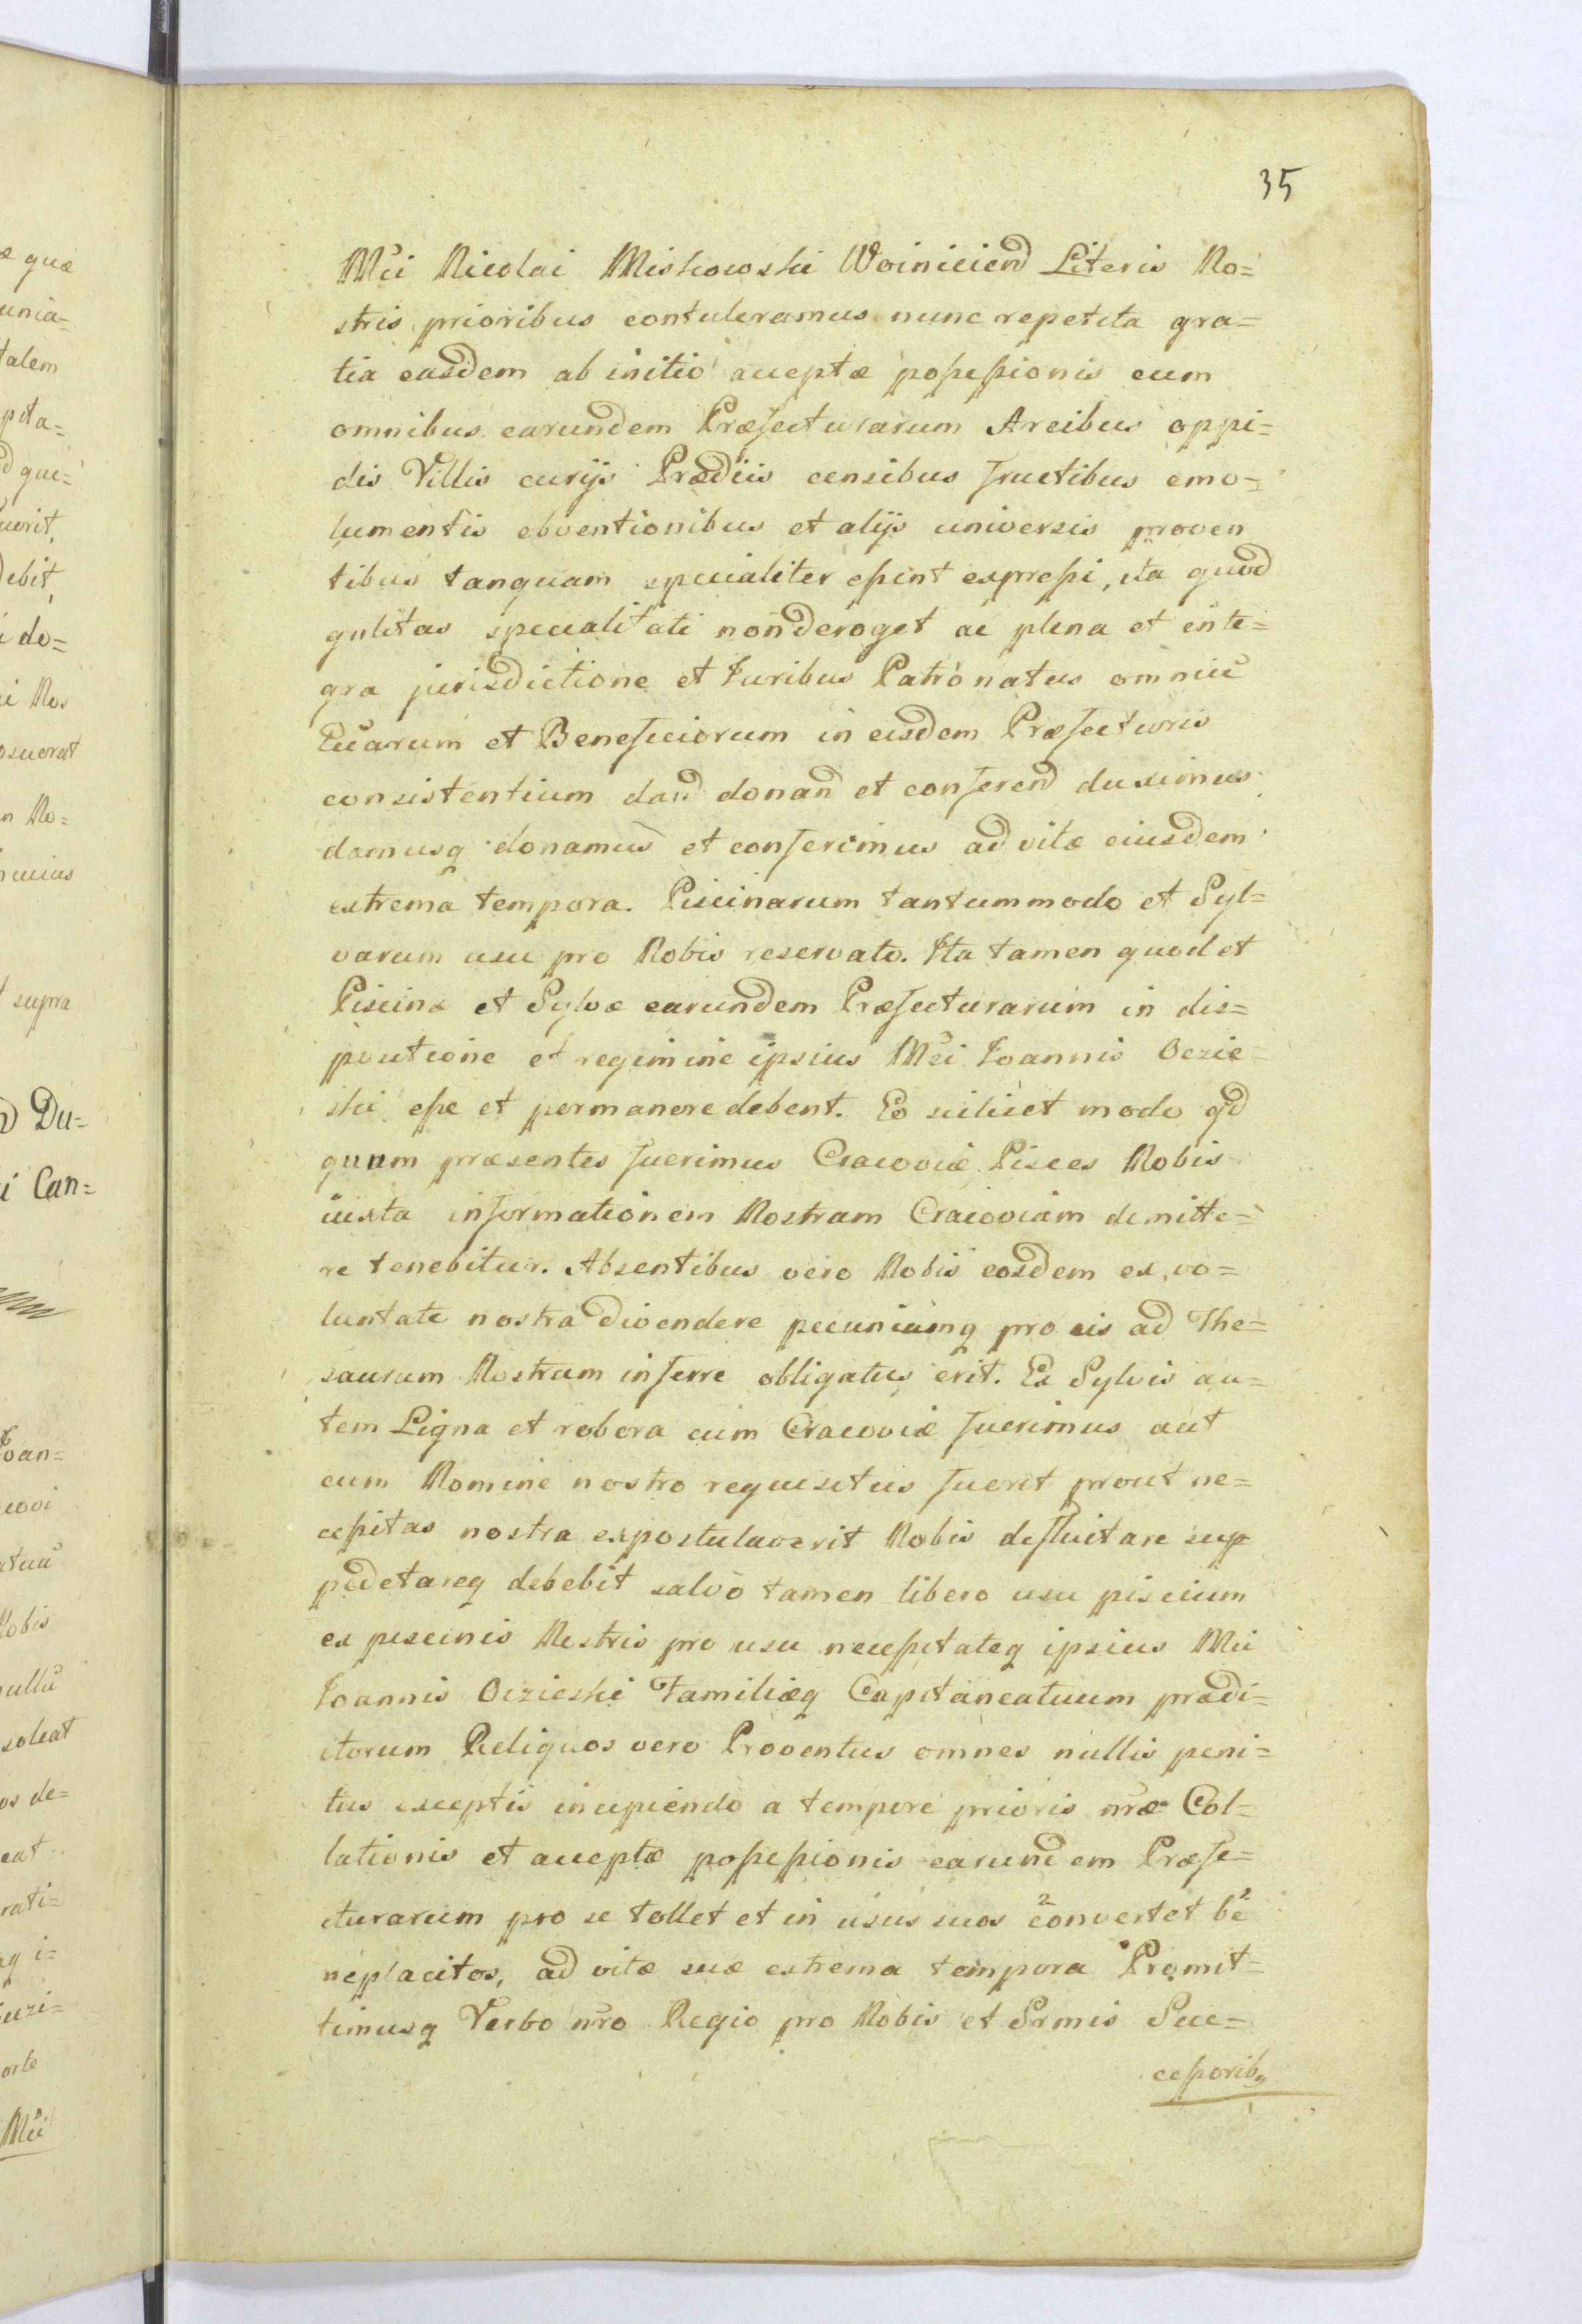 35
Mci Nicolai Miskowski Woiniciend Literis No=
stris prioribus contuleramus nunc repetita gra=
tia easdem ab initio acceptæ poſseſsionis cum
omnibus earundem Præfecturarum Arcibus oppi=
dis Villis curijs Prædiis censibus fructibus emo=
lumentis obventionibus et alijs universis proven
tibus tanquam specialiter eſsent expreſsi, ita quod
gnlitas specialitati non deroget ac plena et inte=
gra jurisdictione et Iuribus Patronatus omniũ
Eccarum et Beneficiorum in eisdem Præfecturis
consistentium dand donand et conferend duximus
damusq donamus et conferimus ad vitæ eiusdem
extrema tempora. Piscinarum tantummodo et Syl=
varum usu pro Nobis reservato. Ita tamen quod et
Piscinæ et Sylvæ earundem Præfecturarum in dis=
positione et regimine ipsius Mci Ioannis Oczie=
ski eſse et permanere debent. Eo scilicet modo qd
quum præsentes fuerimus Cracoviæ Pisces Nobis
iuxta informationem Nostram Cracoviam demitte=
re tenebitur. Absentibus vero Nobis eosdem ex vo=
luntate nostra divendere pecuniamq pro eis ad The=
saurum Nostrum inferre obligatus erit. Ex Sylvis au=
tem Ligna et robora cum Cracoviæ fuerimus aut
cum Nomine nostro requisitus fuerit prout ne=
ceſsitas nostra expostulaverit Nobis defluitare sup
peditareq debebit salvo tamen libero usu piscium
ex piscinis Nostris pro usu neceſsitateq ipsius Mci
Ioannis Oczieski Familiæq Capitaneatuum prædi=
ctorum Reliquos vero Proventus omnes nullis peni=
tus exceptis incipiendo a tempore prioris nræ Col=
lationis et acceptæ poſseſsionis earundem Præfe=
cturarum pro se tollet et in usus suos convertet be
neplacitos, ad vitæ suæ extrema tempora Promit=
timusq Verbo nro Regio pro Nobis et Srmis Suc=
ceſsoribq